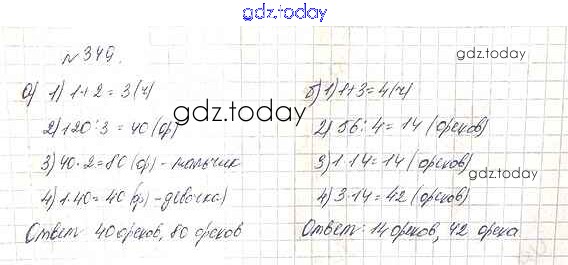 gdz.today
№ 349.
а) 1) 1+2 = 3 (ч)
2) 120 : 3 = 40 (ор)
3) 40 · 2 = 80 (ор) - мальчик
4) 1 · 40 = 40 (ор) - девочка)
Ответ: 40 орехов, 80 орехов
gdz.today
gdz.today
б) 1) 1+3 = 4 (ч)
2) 56 : 4 = 14 (орехов)
3) 1 · 14 = 14 (орехов)
gdz.today
4) 3 · 14 = 42 (орехов)
Ответ: 14 орехов, 42 ореха